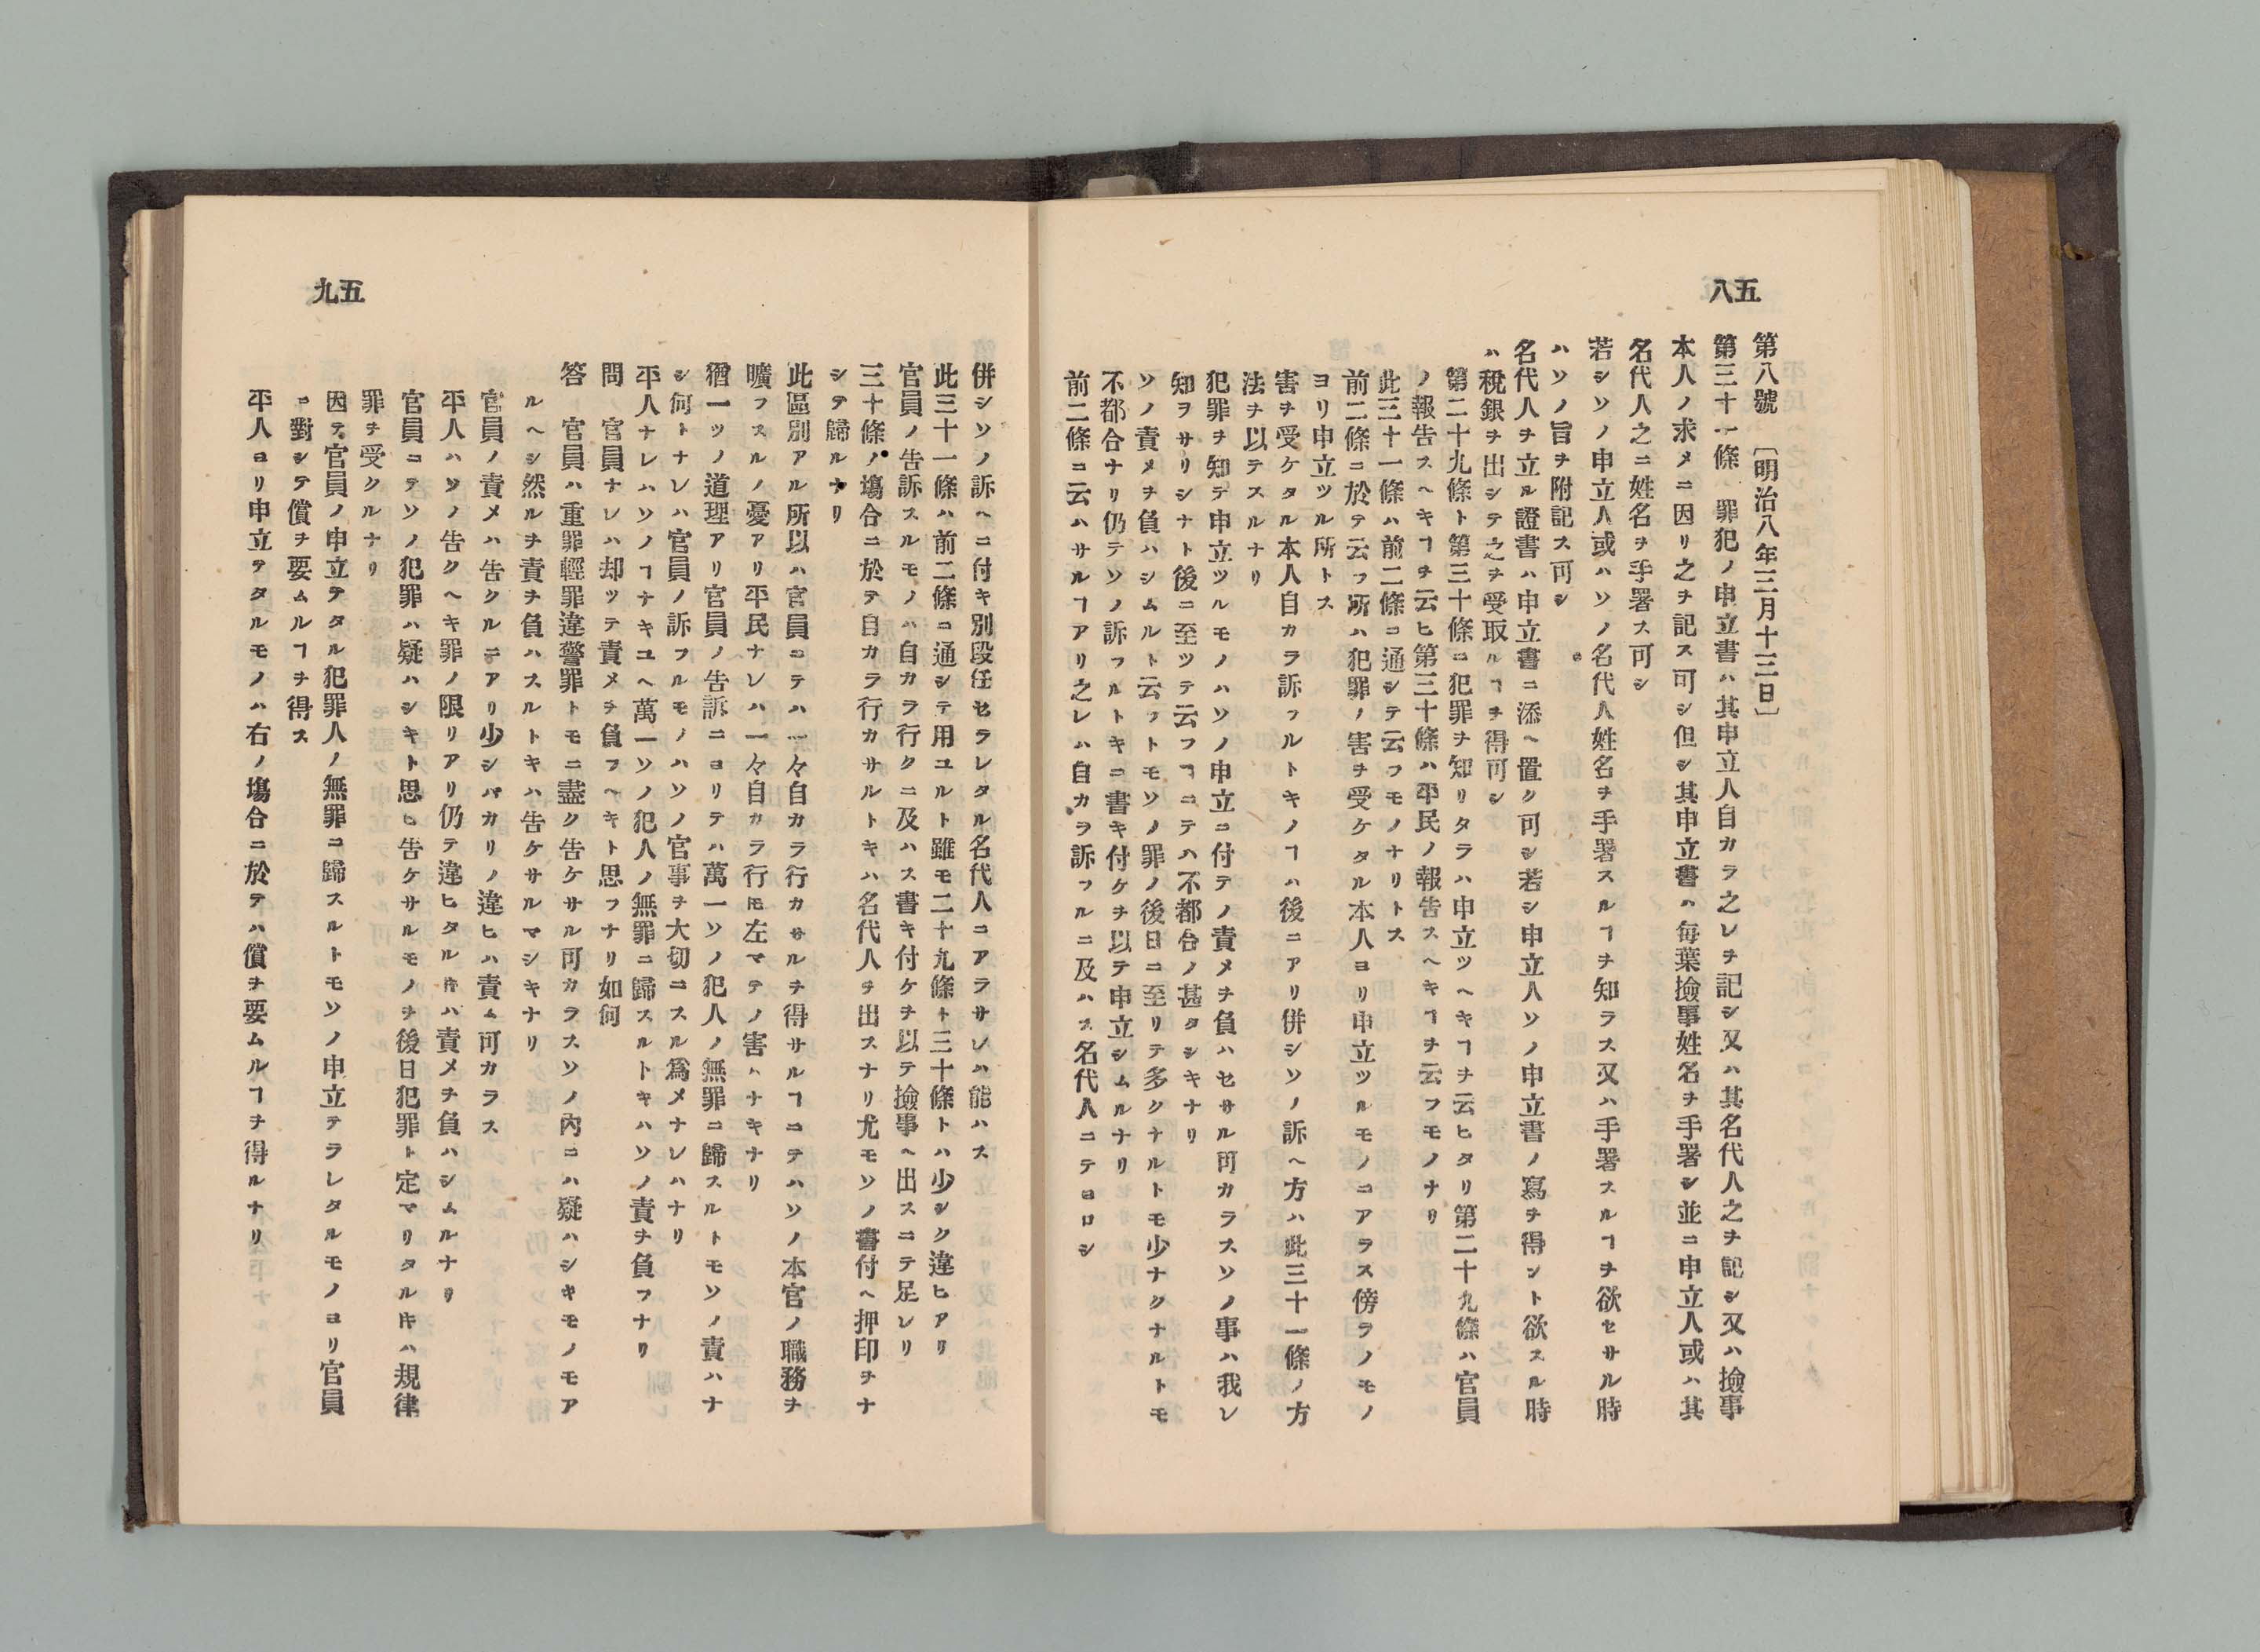 五八
第八號 〔明治八年三月十三日〕
第三十一條 罪犯ノ申立書ハ其申立人自カラ之レヲ記シ又ハ其名代人之ヲ記シ又ハ撿事
本人ノ求メニ因リ之ヲ記ス可シ但シ其申立書ハ每葉撿事姓名ヲ手署シ並ニ申立人或ハ其
名代人之ニ姓名ヲ手署ス可シ
若シソノ申立人或ハソノ名代人姓名ヲ手署スルヿヲ知ラス又ハ手署スルヿヲ欲セサル時
ハソノ旨ヲ附記ス可シ
名代人ヲ立ル證書ハ申立書ニ添ヘ置ク可シ若シ申立人ソノ申立書ノ寫ヲ得ント欲スル時
ハ稅銀ヲ出シテ之ヲ受取ルヿヲ得可シ
第二十九條ト第三十條ニ犯罪ヲ知リタラハ申立ツヘキヿヲ云ヒタリ第二十九條ハ官員
ノ報告スヘキヿヲ云ヒ第三十條ハ平民ノ報告スヘキヿヲ云フモノナリ
此三十一條ハ前二條ニ通シテ云フモノナリトス
前二條ニ於テ云フ所ハ犯罪ノ害ヲ受ケタル本人ヨリ申立ツルモノニアラス傍ラノモノ
ヨリ申立ツル所トス
害ヲ受ケタル本人自カラ訴フルトキノヿハ後ニアリ併シソノ訴ヘ方ハ此三十一條ノ方
法ヲ以テスルナリ
犯罪ヲ知テ申立ツルモノハソノ申立ニ付テノ責メヲ負ハセサル可カラスソノ事ハ我レ
知ヲサリシナト後ニ至ツテ云フヿニテハ不都合ノ甚タシキナリ
ソノ責メヲ負ハシムルト云フトモソノ罪ノ後日ニ至リテ多クナルトモ少ナクナルトモ
不都合ナリ仍テソノ訴フルトキニ書キ付ケヲ以テ申立シムルナリ
前二條ニ云ハサルヿアリ之レハ自カラ訴フルニ及ハス名代人ニテヨロシ
五九
併シソノ訴ヘニ付キ別段任セラレタル名代人ニアラサレハ能ハス
此三十一條ハ前二條ニ通シテ用ユルト雖モ二十九條ト三十條トハ少シク違ヒアリ
官員ノ告訴スルモノハ自カラ行クニ及ハス書キ付ケヲ以テ撿事ヘ出スニテ足レリ
三十條ノ塲合ニ於テ自カラ行カサルトキハ名代人ヲ出スナリ尤モソノ書付ヘ押印ヲナ
シテ歸ルナリ
此區別アル所以ハ官員ニテハ一々自カラ行カサルヲ得サルヿニテハソノ本官ノ職務ヲ
曠フスルノ憂アリ平民ナレハ一々自カラ行モ左マテノ害ハナキナリ
猶一ツノ道理アリ官員ノ告訴ニヨリテハ萬一ソノ犯人ノ無罪ニ歸スルトモソノ責ハナ
シ何トナレハ官員ノ訴フルモノハソノ官事ヲ大切ニスル爲メナレハナリ
平人ナレハソノヿナキユヘ萬一ソノ犯人ノ無罪ニ歸スルトキハソノ責ヲ負フナリ
問 官員ナレハ却ツテ責メヲ負フヘキト思フナリ如何
答 官員ハ重罪輕罪違警罪トモニ盡ク告ケサル可カラスソノ內ニハ疑ハシキモノモア
ルヘシ然ルヲ責ヲ負ハスルトキハ告ケサルマシキナリ
官員ノ責メハ告クルニアリ少シハカリノ違ヒハ責ム可カラス
平人ハソノ告クヘキ罪ノ限リアリ仍テ違ヒタルキハ責メヲ負ハシムルナリ
官員ニテソノ犯罪ハ疑ハシキト思ヒ告ケサルモノヲ後日犯罪ト定マリタルキハ規律
罪ヲ受クルナリ
因テ官員ノ申立テタル犯罪人ノ無罪ニ歸スルトモソノ申立テラレタルモノヨリ官員
ニ對シテ償ヲ要ムルヿヲ得ス
平人ヨリ申立テタルモノハ右ノ塲合ニ於テハ償ヲ要ムルヿヲ得ルナリ